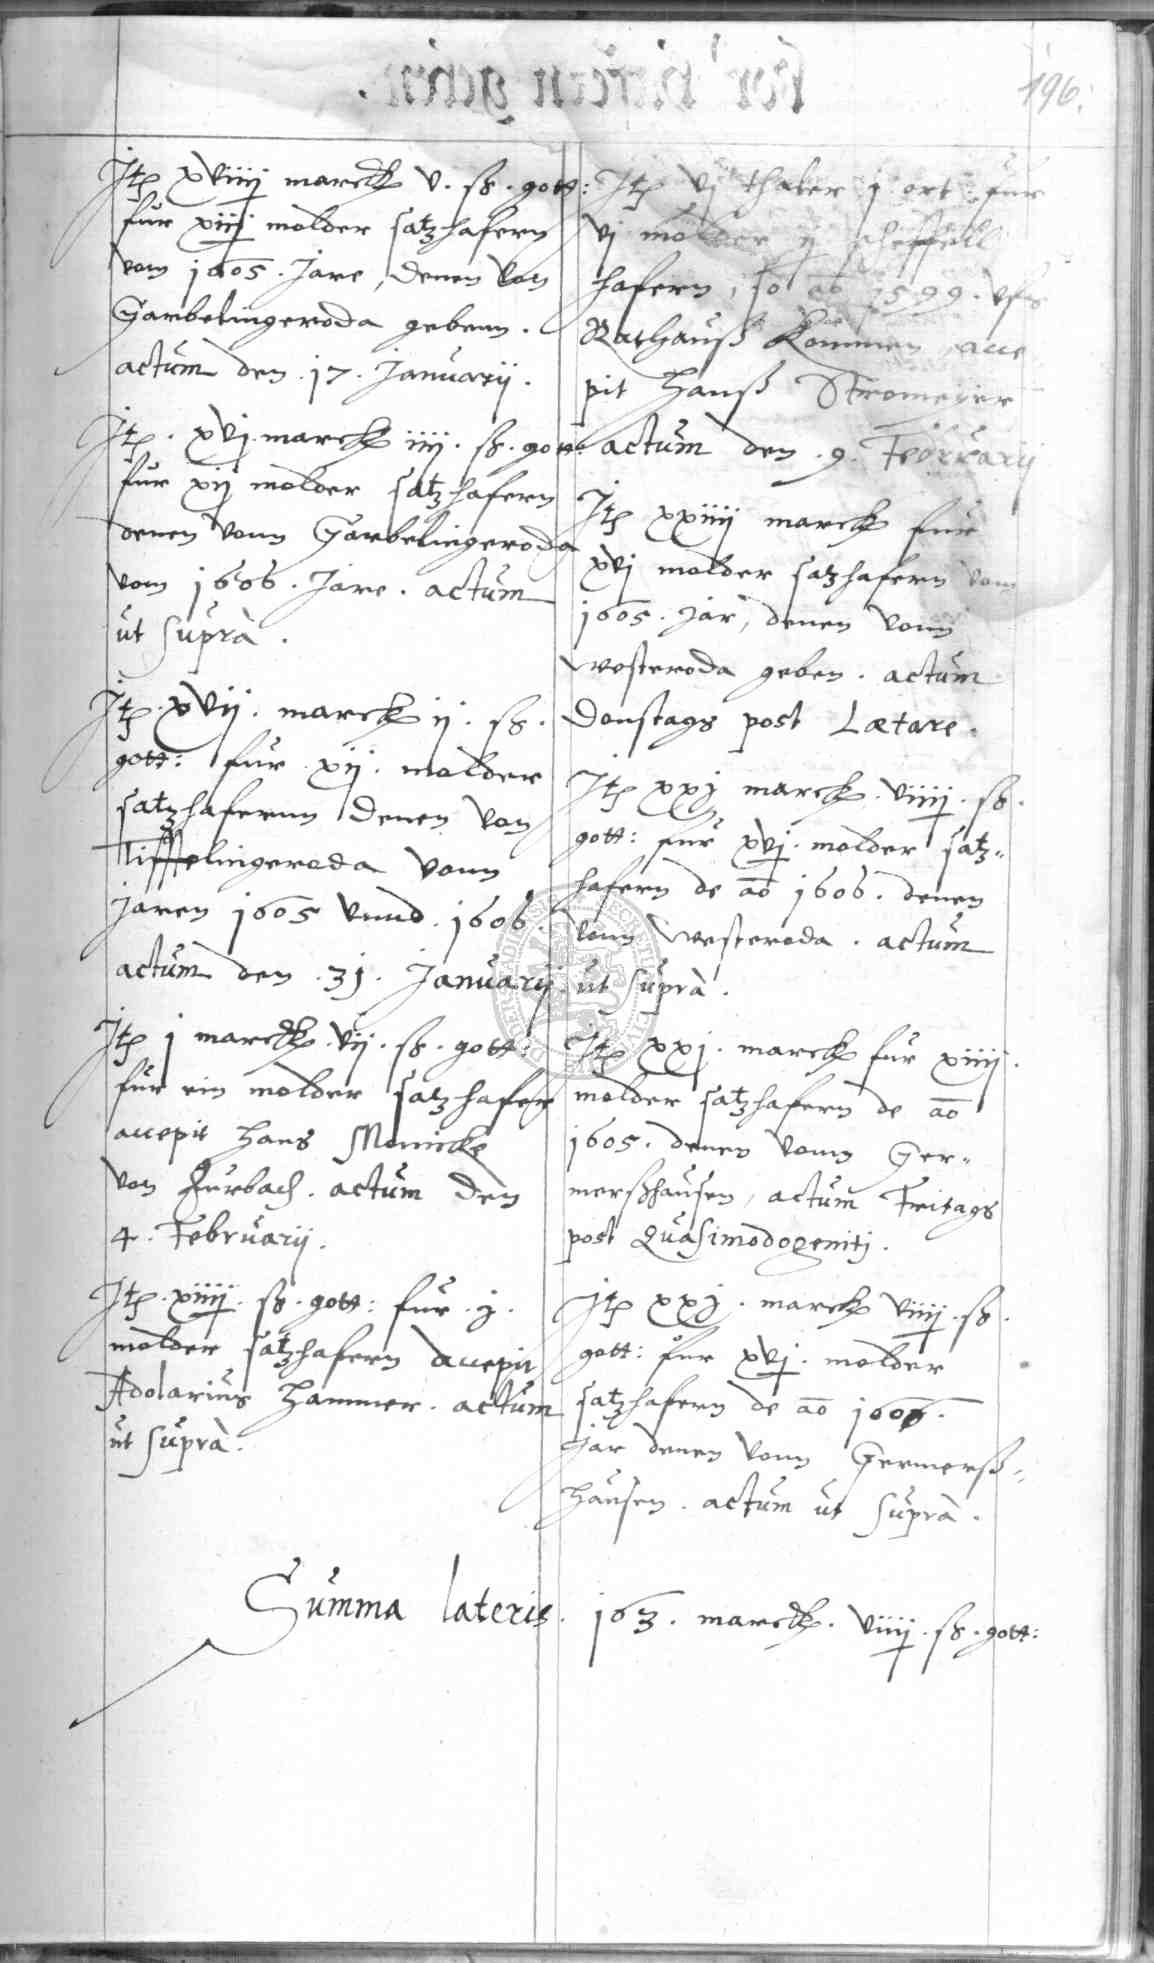 196.
Jtem xviiij marck v. ss. gott:
fur xiiij molder satzhafern
vom 1605. Jare, denen von
Garbelingeroda gebenn.
actum den .17. Januarij.
Jtem. xvj. marck iiij. ss. gott:
fur xij molder satzhafern
denen vonn Garbelingeroda
vom 1606. Jare. actum
ut suprà.
Jtem. xvij. marck ij. ss.
gott: fur xij. molder
satzhafernn denen von
Tifftelingeroda vonn
Jaren 1605 vnnd .1606.
actum den .31. Januarij.
Jtem j marck. vij. ss. gott:
fur ein molder satzhafer
accepit Hans Monicke
von Furbach. actum den
4. Februarij.
Jtem. xiiij. ss. gott: fur .j.
molder satzhafern accepit
Adolarius Hammer. actum
ut suprà.
Jtem vj thaler j ort: fur
vj molder ij scheffell
hafern, so aō 1599. vfs
Rathauß kommen acce
pit Hanß Stromeyer
actum den .9. Februarij
Jtem xxiiij marck fur
xvj molder satzhafern vom
1605. Jar, denen vonn
westeroda geben. actum
Donstags post Lætare.
Jtem xxj marck. viiij. ss.
gott: fur xvj. molder satz-
hafern de aō 1606. denen
vonn westeroda. actum
ut suprà.
Jtem xxj. marck fur xiiij.
molder satzhafern de aō
1605. denen vonn Ger-
merßhausen, actum Freitags
post Quasimodogenitj.
Jtem xxj. marck viiij. ss.
gott: fur xvj. molder
satzhafern de aō 1606.
Jar denen vonn Germerß-
hausen. actum ut suprà.
Summa lateris. 163. marck. viiij. ss. gott: